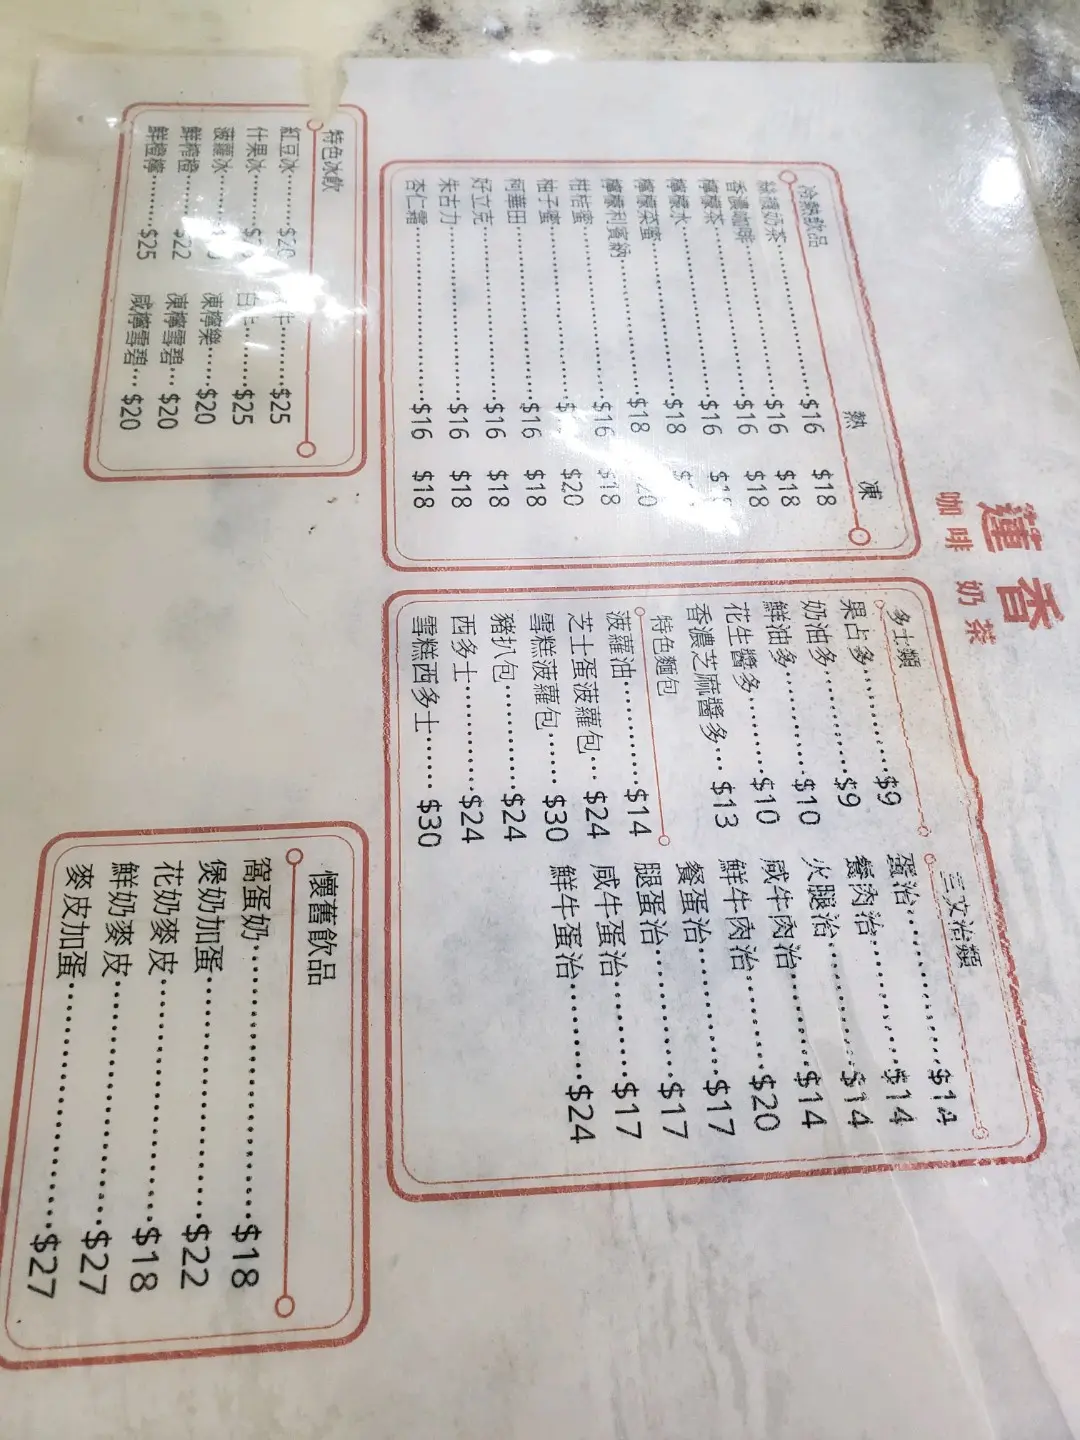 蓮香
咖啡 奶茶
冷熱飲品 熱 凍
絲襪奶茶 $16 $18
香濃咖啡 $16 $18
檸檬茶 $16 $18
檸檬水 $16
檸檬菜蜜 $18
檸檬利賓納 $18
柑桔蜜 $16 $18
柚子蜜 $20
柯華田 $16 $18
好立克 $16 $18
朱古力 $16 $18
杏仁霜 $16 $18
特色冰飲
紅豆冰 $20
什果冰
菠蘿冰
鮮榨橙 $22
鮮橙檸 $25
牛 $25
$25
凍檸樂 $20
凍檸雪碧 $20
咸檸雪碧 $20
多士類
果占多 $9
奶油多 $9
鮮油多 $10
花生醬多 $10
香濃芝麻醬多 $13
特色麵包
菠蘿油 $14
芝士蛋菠蘿包 $24
雪糕菠蘿包 $30
豬扒包 $24
西多士 $24
雪糕西多士 $30
三文治類
蛋治 $14
餐肉治 $14
火腿治 $14
咸牛肉治 $14
鮮牛肉治 $20
餐蛋治 $17
腿蛋治 $17
咸牛蛋治 $17
鮮牛蛋治 $24
懷舊飲品
窩蛋奶 $18
煲奶加蛋 $22
花奶麥皮 $18
鮮奶麥皮 $27
麥皮加蛋 $27